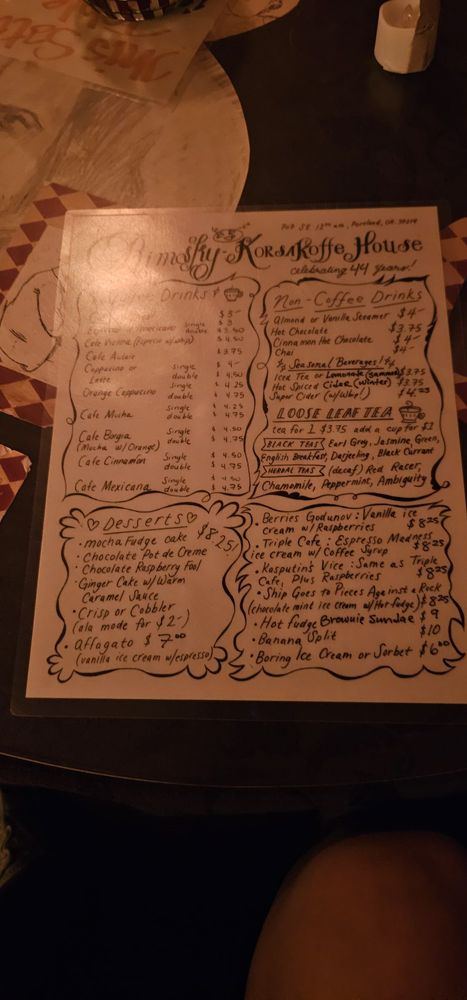 707 SE 12th ave, Portland, OR. 97214
Rimsky-Korsakoffee House
celebrating 44 years!
Drinks
$3-
Espresso or Americano single $3
double $3.50
Cafe Vienna (Espresso w/whip) $4.50
Cafe Aulait $3.75
Cappucino or single $4-
Latte double $4.50
Orange Cappucino single $4.25
double $4.75
Cafe Mocha single $4.25
double $4.75
Cafe Borgia single $4.50
(Mocha w/Orange) double $4.75
Cafe Cinnamon Single $4.50
double $4.75
Cafe Mexicana single $4.50
double $4.75
Non-Coffee Drinks
Almond or Vanilla Steamer $4-
Hot Chocolate $3.75
Cinnamon Hot Chocolate $4-
Chai $4-
Seasonal Beverages!
Iced Tea or Lemonade (summer) $3.75
Hot Spiced Cider (winter) $3.75
Super Cider (w/Whip!) $4.25
LOOSE LEAF TEA
tea for 1 $3.75 add a cup for $1
BLACK TEAS Earl Grey, Jasmine, Green,
English Breakfast, Darjeeling, Black Currant
HERBAL TEAS (decaf) Red Racer,
Chamomile, Peppermint, Ambiguity
Desserts $8.25!
• mocha fudge cake
• Chocolate Pot de Creme
• Chocolate Raspberry Fool
• Ginger Cake w/Warm
Caramel Sauce
• Crisp or Cobbler
(ala mode for $2-)
• Affogato $7.00
(vanilla ice cream w/espresso)
• Berries Godunov: Vanilla ice
cream w/Raspberries $8.25
• Triple Cafe: Espresso Madness
ice cream w/Coffee Syrup $8.25
• Rasputin's Vice: Same as Triple
Cafe, Plus Raspberries $8.25
• Ship Goes to Pieces Against a Rock
(chocolate mint ice cream w/Hot fudge) $8.25
• Hot fudge Brownie Sundae $9
• Banana Split $10
• Boring Ice Cream or Sorbet $6.00